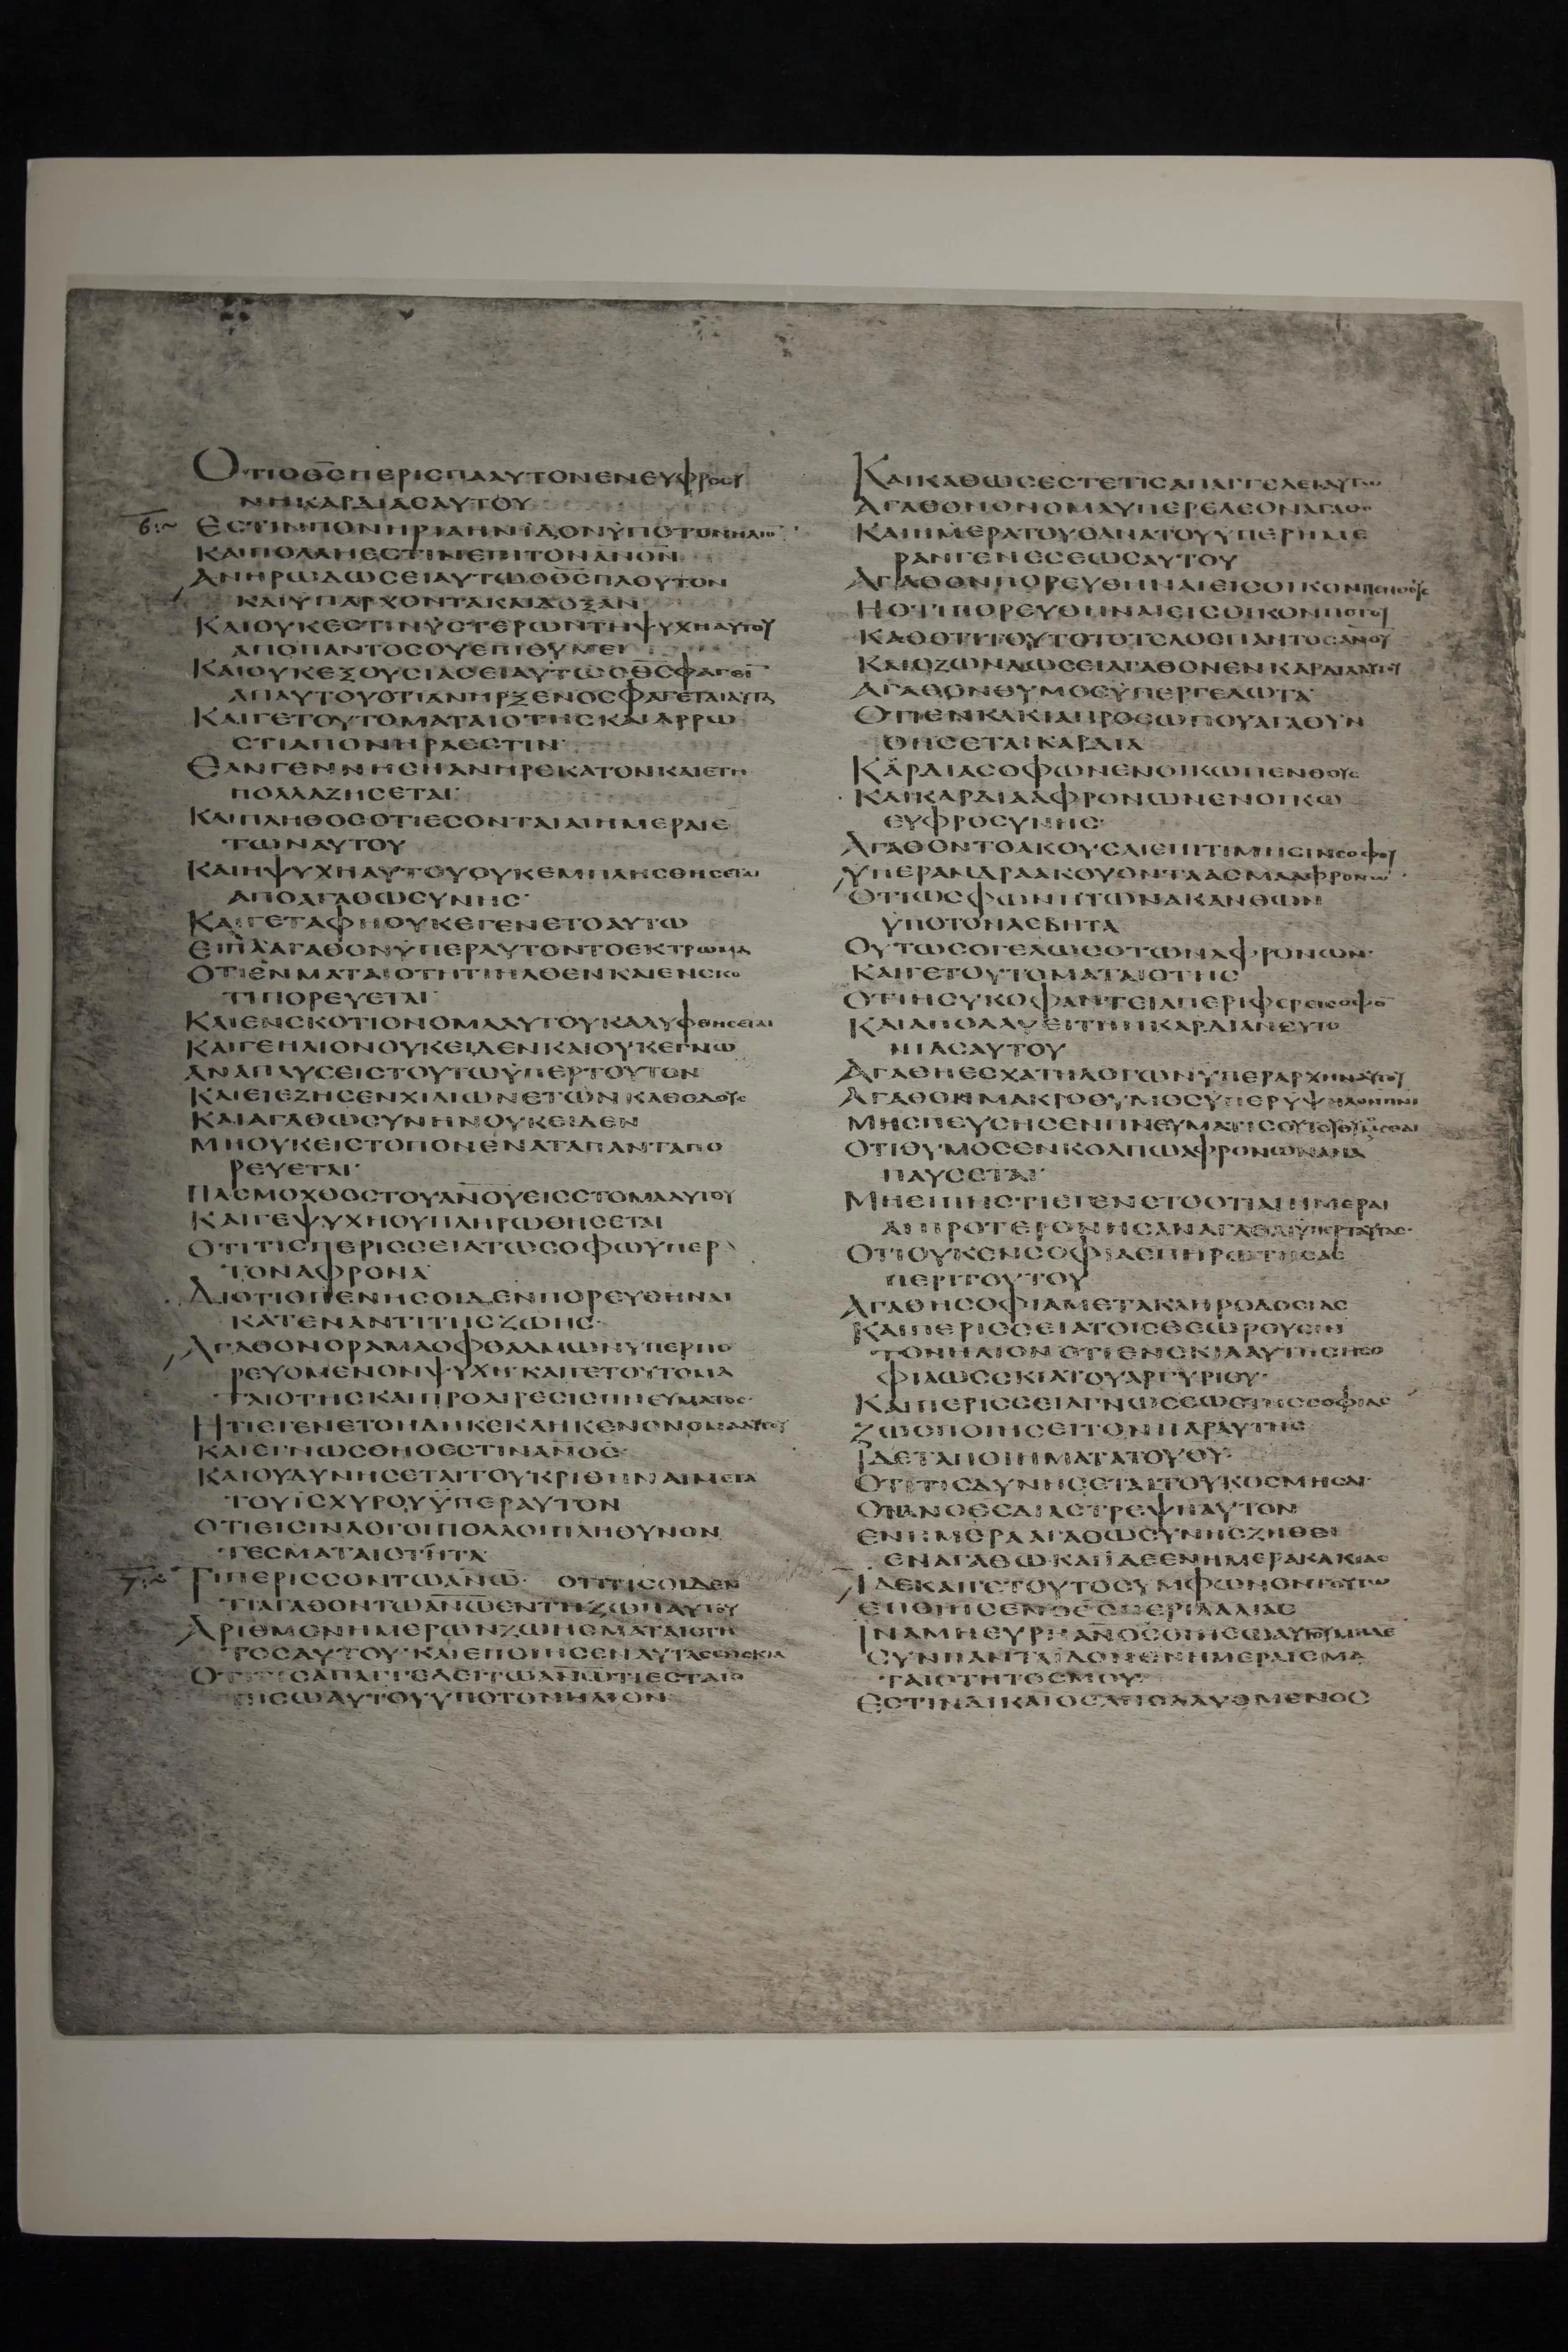 ΟΤΙΟΘ̅Σ̅ΠΕΡΙΣΠΑΑΥΤΟΝΕΝΕΥΦΡΟΣΥ
ΝΗΚΑΡΔΙΑΣΑΥΤΟΥ
6:~ ΕΣΤΙΝΠΟΝΗΡΙΑΗΝΪΔΟΝΫΠΟΤΟΝΗΛΙΟ̅
ΚΑΙΠΟΛΛΗΕΣΤΙΝΕΠΙΤΟΝΑ̅Ν̅Ο̅Ν̅
ΑΝΗΡΩΔΩΣΕΙΑΥΤΩΟΘ̅Σ̅ΠΛΟΥΤΟΝ
ΚΑΙΫΠΑΡΧΟΝΤΑΚΑΙΔΟΞΑΝ
ΚΑΙΟΥΚΕΣΤΙΝΫΣΤΕΡΩΝΤΗΨΥΧΗΑΥΤΟΥ
ΑΠΟΠΑΝΤΟΣΟΥΕΠΙΘΥΜΕΙ
ΚΑΙΟΥΚΕΞΟΥΣΙΑΣΕΙΑΥΤΩΟΘ̅Σ̅ΦΑΓΕΙ̅
ΑΠΑΥΤΟΥΟΤΙΑΝΗΡΞΕΝΟΣΦΑΓΕΤΑΙΑΥΤΑ
ΚΑΙΓΕΤΟΥΤΟΜΑΤΑΙΟΤΗΣΚΑΙΑΡΡΩ
ΣΤΙΑΠΟΝΗΡΑΕΣΤΙΝ·
ΕΑΝΓΕΝΝΗΣΗΑΝΗΡΕΚΑΤΟΝΚΑΙΕΤΗ
ΠΟΛΛΑΖΗΣΕΤΑΙ·
ΚΑΙΠΛΗΘΟΣΟΤΙΕΣΟΝΤΑΙΑΙΗΜΕΡΑΙΕ
ΤΩΝΑΥΤΟΥ
ΚΑΙΗΨΥΧΗΑΥΤΟΥΟΥΚΕΜΠΛΗΣΘΗΣΕΤΑΙ
ΑΠΟΑΓΑΘΩΣΥΝΗΣ·
ΚΑΙΓΕΤΑΦΗΟΥΚΕΓΕΝΕΤΟΑΥΤΩ
ΕΙΠΑΑΓΑΘΟΝΫΠΕΡΑΥΤΟΝΤΟΕΚΤΡΩΜΑ
ΟΤΙΕΝΜΑΤΑΙΟΤΗΤΙΗΛΘΕΝΚΑΙΕΝΣΚΟ
ΤΙΠΟΡΕΥΕΤΑΙ·
ΚΑΙΕΝΣΚΟΤΙΟΝΟΜΑΑΥΤΟΥΚΑΛΥΦΘΗΣΕΤΑΙ
ΚΑΙΓΕΗΛΙΟΝΟΥΚΕΙΔΕΝΚΑΙΟΥΚΕΓΝΩ
ΑΝΑΠΑΥΣΕΙΣΤΟΥΤΩΫΠΕΡΤΟΥΤΟΝ
ΚΑΙΕΙΕΖΗΣΕΝΧΙΛΙΩΝΕΤΩΝΚΑΘΟΔΟΥΣ
ΚΑΙΑΓΑΘΩΣΥΝΗΝΟΥΚΕΙΔΕΝ
ΜΗΟΥΚΕΙΣΤΟΠΟΝΕΝΑΤΑΠΑΝΤΑΠΟ
ΡΕΥΕΤΑΙ·
ΠΑΣΜΟΧΘΟΣΤΟΥΑ̅Ν̅Ο̅Υ̅ΕΙΣΣΤΟΜΑΑΥΤΟΥ
ΚΑΙΓΕΨΥΧΗΟΥΠΛΗΡΩΘΗΣΕΤΑΙ
ΟΤΙΤΙΣΠΕΡΙΣΣΕΙΑΤΩΣΟΦΩΫΠΕΡ
ΤΟΝΑΦΡΟΝΑ
ΔΙΟΤΙΟΠΕΝΗΣΟΙΔΕΝΠΟΡΕΥΘΗΝΑΙ
ΚΑΤΕΝΑΝΤΙΤΗΣΖΩΗΣ·
ΑΓΑΘΟΝΟΡΑΜΑΟΦΘΑΛΜΩΝΥΠΕΡΠΟ
ΡΕΥΟΜΕΝΟΝΨΥΧΗ·ΚΑΙΓΕΤΟΥΤΟΜΑ
ΤΑΙΟΤΗΣΚΑΙΠΡΟΑΙΡΕΣΙΣΠΝΕΥΜΑΤΟΣ·
ΗΤΙΕΓΕΝΕΤΟΗΔΗΚΕΚΛΗΚΕΝΟΝΟΜΑΑΥΤΟΥ
ΚΑΙΕΓΝΩΣΘΗΟΕΣΤΙΝΑ̅Ν̅Ο̅Σ̅·
ΚΑΙΟΥΔΥΝΗΣΕΤΑΙΤΟΥΚΡΙΘΗΝΑΙΜΕΤΑ
ΤΟΥΪΣΧΥΡΟΥΫΠΕΡΑΥΤΟΝ
ΟΤΙΕΙΣΙΝΛΟΓΟΙΠΟΛΛΟΙΠΛΗΘΥΝΟΝ
ΤΕΣΜΑΤΑΙΟΤΗΤΑ·
7:~ ΤΙΠΕΡΙΣΣΟΝΤΩΑ̅Ν̅Ω̅· ΟΤΙΤΙΣΟΙΔΕΝ
ΤΙΑΓΑΘΟΝΤΩΑ̅Ν̅Ω̅ΕΝΤΗΖΩΗΑΥΤΟΥ
ΑΡΙΘΜΟΝΗΜΕΡΩΝΖΩΗΣΜΑΤΑΙΟΤΗ
ΤΟΣΑΥΤΟΥ·ΚΑΙΕΠΟΙΗΣΕΝΑΥΤΑΣΕΝΣΚΙΑ
ΟΤΙΤΙΣΑΠΑΓΓΕΛΕΙΤΩΑ̅Ν̅Ω̅ΤΙΕΣΤΑΙΟ
ΠΙΣΩΑΥΤΟΥΥΠΟΤΟΝΗΛΙΟΝ·
ΚΑΙΚΑΘΩΣΕΣΤΕΤΙΣΑΠΑΓΓΕΛΕΙΑΥΤΩ
ΑΓΑΘΟΝΟΝΟΜΑΥΠΕΡΕΛΕΟΝΑΓΑΘΟ
ΚΑΙΗΜΕΡΑΤΟΥΘΑΝΑΤΟΥΥΠΕΡΗΜΕ
ΡΑΝΓΕΝΕΣΕΩΣΑΥΤΟΥ
ΑΓΑΘΟΝΠΟΡΕΥΘΗΝΑΙΕΙΣΟΙΚΟΝΠΕΝΘΟΥΣ
ΗΟΤΙΠΟΡΕΥΘΗΝΑΙΕΙΣΟΙΚΟΝΠΟΤΟΥ
ΚΑΘΟΤΙΤΟΥΤΟΤΟΤΕΛΟΣΠΑΝΤΟΣΑ̅Ν̅Ο̅Υ̅
ΚΑΙΟΖΩΝΔΩΣΕΙΑΓΑΘΟΝΕΝΚΑΡΔΙΑΑΥΤΟΥ
ΑΓΑΘΟΝΘΥΜΟΣΫΠΕΡΓΕΛΩΤΑ·
ΟΤΙΕΝΚΑΚΙΑΠΡΟΣΩΠΟΥΑΓΑΘΥΝ
ΘΗΣΕΤΑΙΚΑΡΔΙΑ
ΚΑΡΔΙΑΣΟΦΩΝΕΝΟΙΚΩΠΕΝΘΟΥΣ
ΚΑΙΚΑΡΔΙΑΑΦΡΟΝΩΝΕΝΟΙΚΩ
ΕΥΦΡΟΣΥΝΗΣ·
ΑΓΑΘΟΝΤΟΑΚΟΥΣΑΙΕΠΙΤΙΜΗΣΙΝΣΟΦΟΥ
ΥΠΕΡΑΝΔΡΑΑΚΟΥΟΝΤΑΑΣΜΑΑΦΡΟΝΩ̅·
ΟΤΙΩΣΦΩΝΗΤΩΝΑΚΑΝΘΩΝ
ΫΠΟΤΟΝΛΕΒΗΤΑ
ΟΥΤΩΣΟΓΕΛΩΣΟΤΩΝΑΦΡΟΝΩΝ·
ΚΑΙΓΕΤΟΥΤΟΜΑΤΑΙΟΤΗΣ
ΟΤΙΗΣΥΚΟΦΑΝΤΕΙΑΠΕΡΙΦΕΡΕΙΣΟΦΟ̅
ΚΑΙΑΠΟΛΛΥΕΙΤΗΝΚΑΡΔΙΑΝΕΥΤΟ
ΝΙΑΣΑΥΤΟΥ
ΑΓΑΘΗΕΣΧΑΤΗΛΟΓΩΝΫΠΕΡΑΡΧΗΝΑΥΤΟΥ
ΑΓΑΘΟΝΜΑΚΡΟΘΥΜΟΣΫΠΕΡΥΨΗΛΟΝΠΝΙ
ΜΗΣΠΕΥΣΗΣΕΝΠΝΕΥΜΑΤΙΣΟΥΤΟΥΘΥΜΟΥΣΘΑΙ
ΟΤΙΘΥΜΟΣΕΝΚΟΛΠΩΑΦΡΟΝΩΝΑΝΑ
ΠΑΥΣΕΤΑΙ·
ΜΗΕΙΠΗΣΤΙΕΓΕΝΕΤΟΟΤΙΑΙΗΜΕΡΑΙ
ΑΙΠΡΟΤΕΡΟΝΗΣΑΝΑΓΑΘΑΙΫΠΕΡΤΑΥΤΑΣ·
ΟΤΙΟΥΚΕΝΣΟΦΙΑΕΠΗΡΩΤΗΣΑΣ
ΠΕΡΙΤΟΥΤΟΥ
ΑΓΑΘΗΣΟΦΙΑΜΕΤΑΚΛΗΡΟΔΟΣΙΑΣ
ΚΑΙΠΕΡΙΣΣΕΙΑΤΟΙΣΘΕΩΡΟΥΣΙΝ
ΤΟΝΗΛΙΟΝΟΤΙΕΝΣΚΙΑΑΥΤΗΣΗΣΟ
ΦΙΑΩΣΣΚΙΑΤΟΥΑΡΓΥΡΙΟΥ·
ΚΑΙΠΕΡΙΣΣΕΙΑΓΝΩΣΕΩΣΤΗΣΣΟΦΙΑΣ
ΖΩΟΠΟΙΗΣΕΙΤΟΝΠΑΡΑΥΤΗΣ
ΪΔΕΤΑΠΟΙΗΜΑΤΑΤΟΥΘ̅Υ̅·
ΟΤΙΤΙΣΔΥΝΗΣΕΤΑΙΤΟΥΚΟΣΜΗΣΑΙ·
ΟΝΑΝΟΘΣΔΙΑΣΤΡΕΨΗΑΥΤΟΝ
ΕΝΗΜΕΡΑΑΓΑΘΩΣΥΝΗΣΖΗΘΕΙ
ΕΝΑΓΑΘΩ·ΚΑΙΪΔΕΕΝΗΜΕΡΑΚΑΚΙΑΣ
ΪΔΕΚΑΙΓΕΤΟΥΤΟΣΥΜΦΩΝΟΝΤΟΥΤΩ
ΕΠΟΙΗΣΕΝΟΘ̅Σ̅ΠΕΡΙΛΑΛΙΑΣ
ΪΝΑΜΗΕΥΡΗΑ̅Ν̅Ο̅Σ̅ΟΠΙΣΩΑΥΤΟΥΜΗΔΕ
ΣΥΝΠΑΝΤΑΪΔΟΝΕΝΗΜΕΡΑΙΣΜΑ
ΤΑΙΟΤΗΤΟΣΜΟΥ·
ΕΣΤΙΝΔΙΚΑΙΟΣΑΠΟΛΛΥΟΜΕΝΟΣ